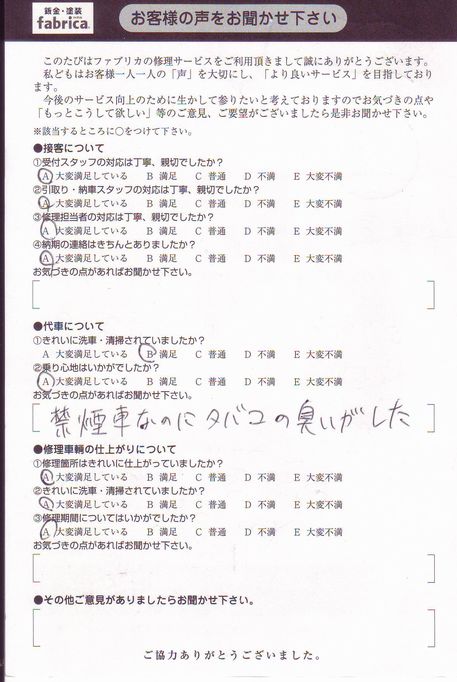 鈑金・塗装
fabrica
お客様の声をお聞かせ下さい
このたびはファブリカの修理サービスをご利用頂きまして誠にありがとうございます。
私どもはお客様一人一人の「声」を大切にし、「より良いサービス」を目指しており
ます。
今後のサービス向上のために生かして参りたいと考えておりますのでお気づきの点や
「もっとこうして欲しい」等のご意見、ご要望がございましたら是非お聞かせ下さい。
※該当するところに○をつけて下さい。
●接客について
①受付スタッフの対応は丁寧、親切でしたか？
A 大変満足している B 満足 C 普通 D 不満 E 大変不満
②引取り・納車スタッフの対応は丁寧、親切でしたか？
A 大変満足している B 満足 C 普通 D 不満 E 大変不満
③修理担当者の対応は丁寧、親切でしたか？
A 大変満足している B 満足 C 普通 D 不満 E 大変不満
④納期の連絡はきちんとありましたか？
A 大変満足している B 満足 C 普通 D 不満 E 大変不満
お気づきの点があればお聞かせ下さい。
●代車について
①きれいに洗車・清掃されていましたか？
A 大変満足している B 満足 C 普通 D 不満 E 大変不満
②乗り心地はいかがでしたか？
A 大変満足している B 満足 C 普通 D 不満 E 大変不満
お気づきの点があればお聞かせ下さい。
禁煙車なのにタバコの臭いがした
●修理車輌の仕上がりについて
①修理箇所はきれいに仕上がっていましたか？
A 大変満足している B 満足 C 普通 D 不満 E 大変不満
②きれいに洗車・清掃されていましたか？
A 大変満足している B 満足 C 普通 D 不満 E 大変不満
③修理期間についてはいかがでしたか？
A 大変満足している B 満足 C 普通 D 不満 E 大変不満
お気づきの点があればお聞かせ下さい。
●その他ご意見がありましたらお聞かせ下さい。
ご協力ありがとうございました。